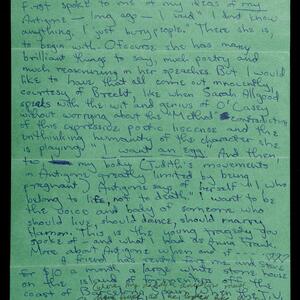 First spoke to me of my ideas of my
Antigone — long ago — I said "I don't know
anything, I just bury people." There she is,
to begin with. Of course she has many
brilliant things to say, much poetry and
much reasoning in her speeches But I would
like to have that all come out innocently,
courtesy of Brecht, like when Sarah Allgood
speaks with the wit and genius of O'Casey
without worrying about the "Method" contradiction
of this expressive poetic licence and the
unthinking humanity of the character she
is playing. "I want an egg. And then
to my body (Judith's movements
in Antigone greatly limited by being
pregnant) Antigone says of herself "I, who
belong to life, not to death" I want to be
the voice and body of someone who
should live, should dance, should marry
Haemon. This is the young tragedy you
spoke of – and what I had as Anna Frank.
More about Antigone when and if –
A friend has to me and
for $10 a month a large white stone house
on the island of off the
coast of